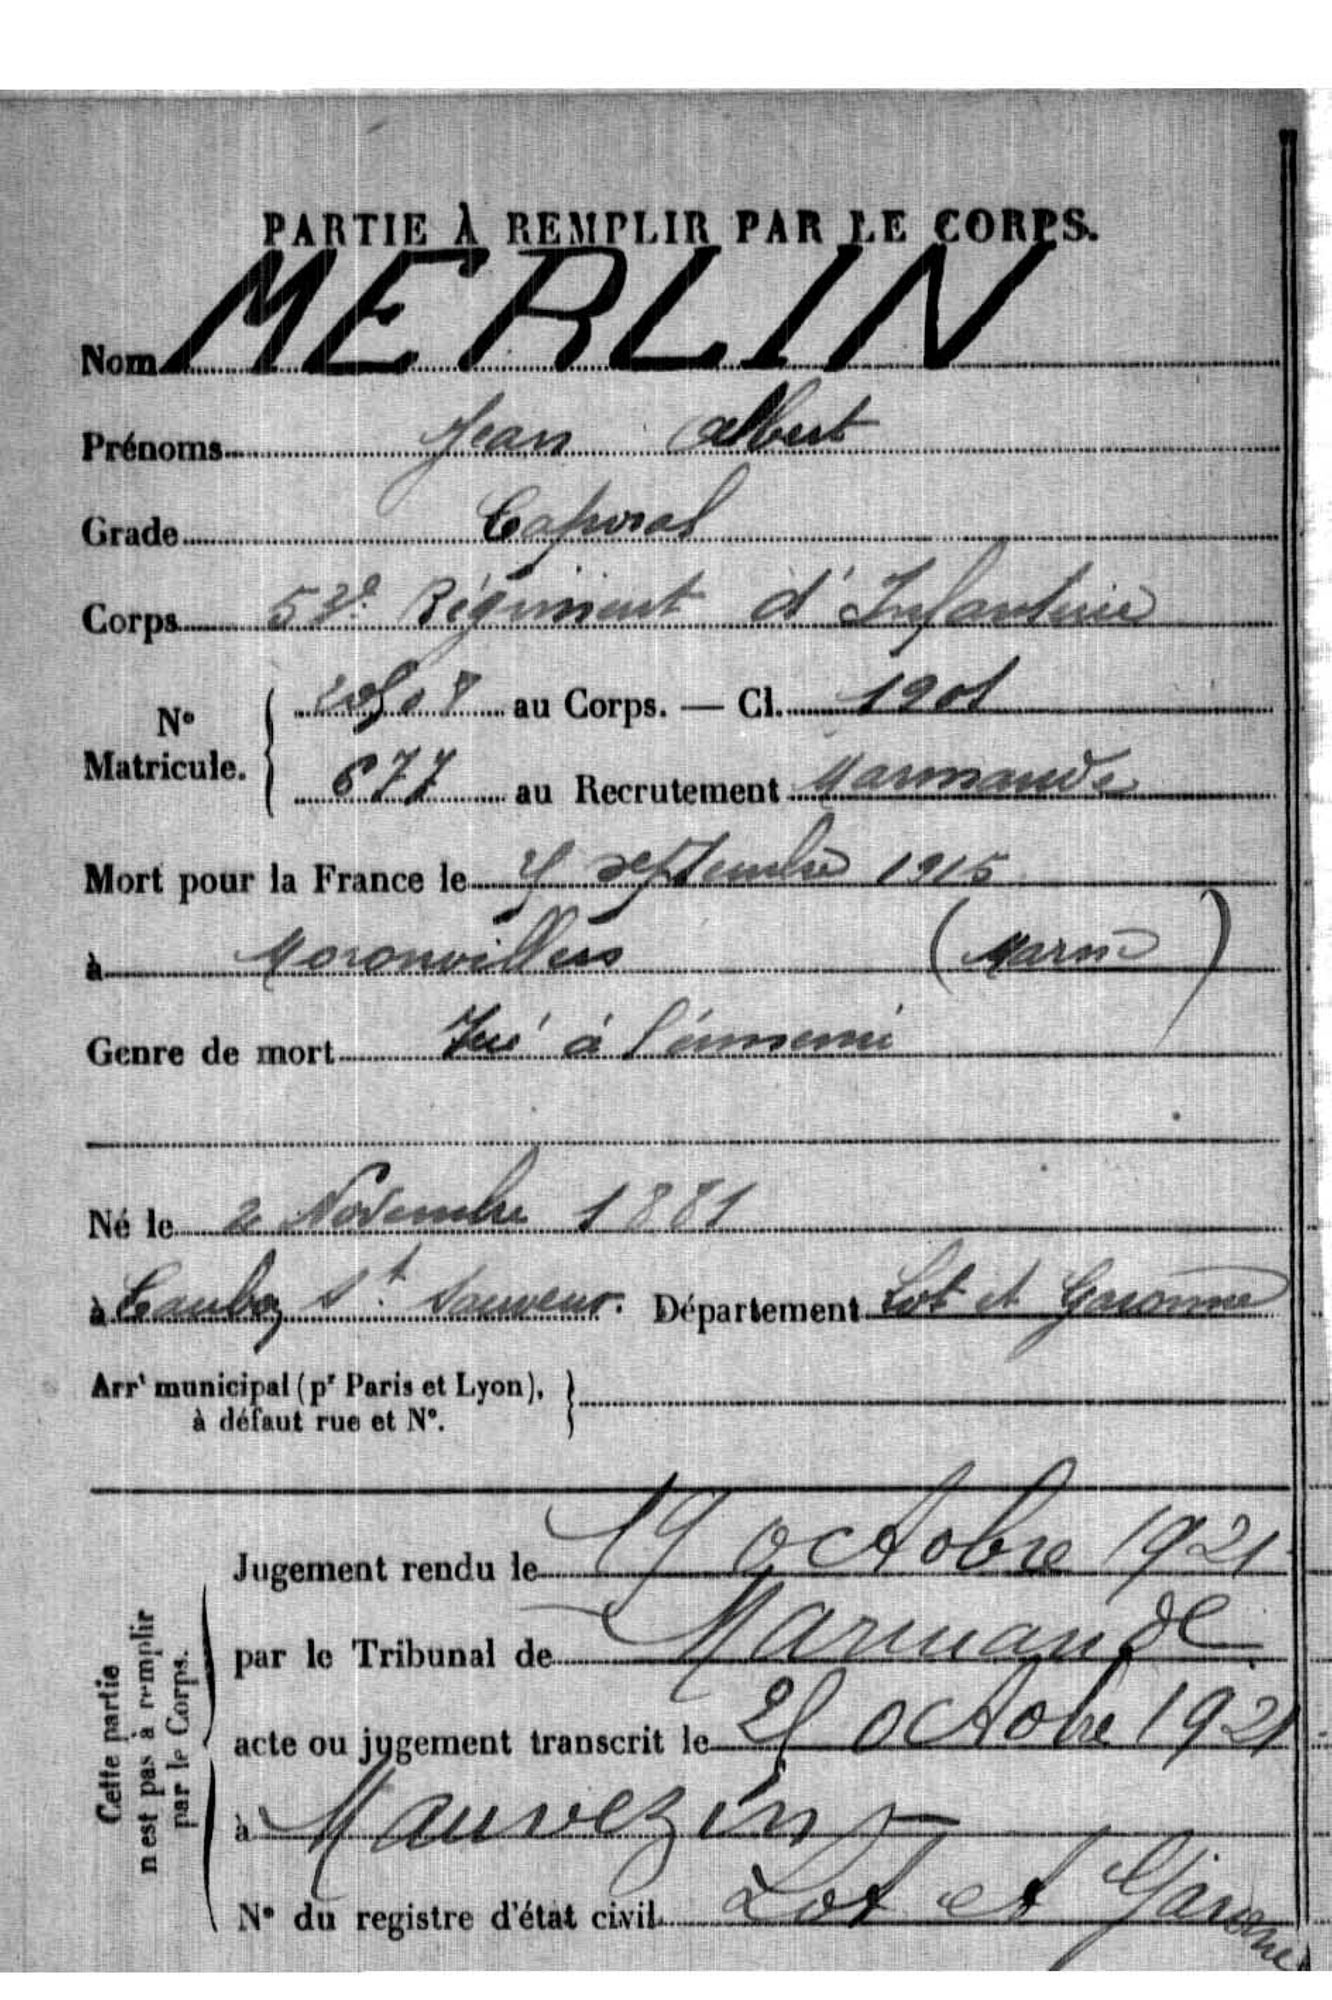 PARTIE À REMPLIR PAR LE CORPS.
Nom MERLIN
Prénoms Jean Albert
Grade Caporal
Corps 53e Régiment d'Infanterie
N° Matricule. { au Corps. — Cl. 1901
677 au Recrutement Marmande
Mort pour la France le septembre 1915
à Moronvillers (Marne)
Genre de mort Tué à l'ennemi
Né le 2 Novembre 1881
à Caubon St. Sauveur. Département Lot et Garonne
Arrt municipal (pr Paris et Lyon), }
à défaut rue et N°.
Cette partie n'est pas à remplir par le Corps.
Jugement rendu le 19 octobre 1921
par le Tribunal de Marmande
acte ou jugement transcrit le octobre 1921
à Mauvezin
N° du registre d'état civil Lot et Garonne